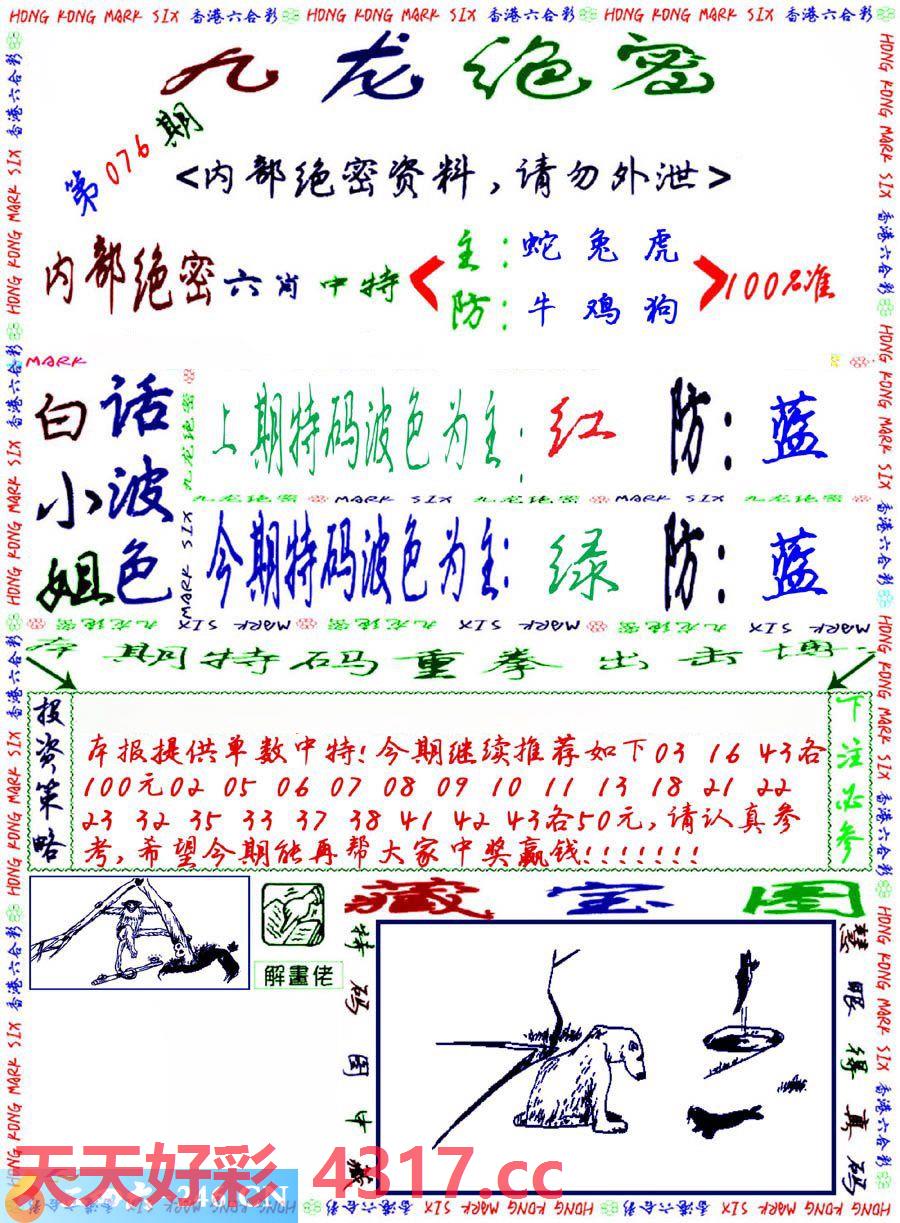 HONG KONG MARK SIX 香港六合彩 HONG KONG MARK SIX 香港六合彩 HONG KONG MARK SIX 香港六合彩
九龙绝密
第076期
<内部绝密资料,请勿外泄>
内部绝密六肖中特
主:蛇兔虎
防:牛鸡狗
100%准
MARK
白话小波姐色
九龙绝密 MARK SIX
上期特码波色为主:红 防:蓝
九龙绝密 MARK SIX 九龙绝密 MARK SIX 九龙绝密
今期特码波色为主:绿 防:蓝
九龙绝密 MARK SIX 九龙绝密 MARK SIX 九龙绝密 MARK SIX 九龙绝密 MARK SIX
本期特码重拳出击博
投资策略
本报提供单数中特!今期继续推荐如下03 16 43各
100元02 05 06 07 08 09 10 11 13 18 21 22
23 32 35 33 37 38 41 42 43各50元,请认真参
考,希望今期能再帮大家中奖赢钱!!!!!!!
下注必参
藏宝图
解畫佬
特码图中藏
慧眼得真码
天天好彩 4317.cc
246.CN